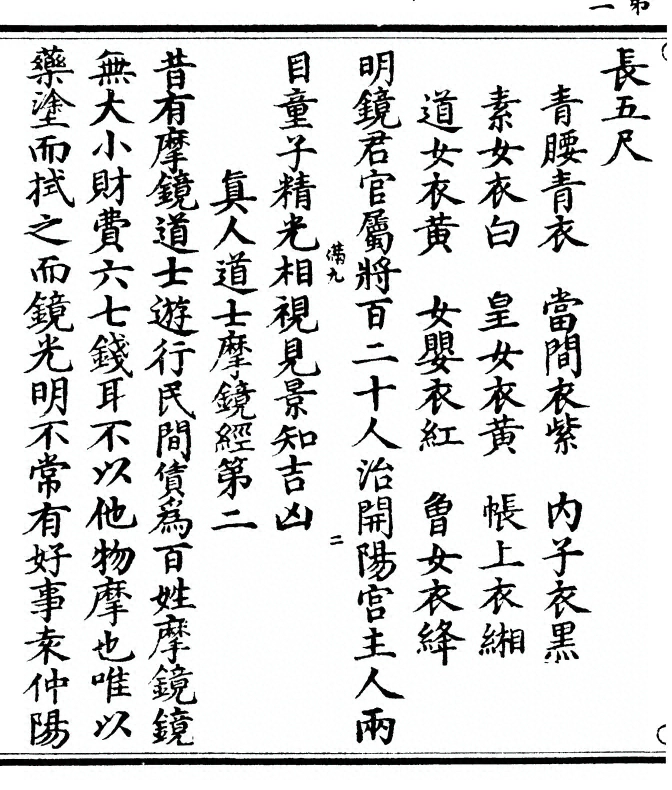 長五尺
青腰青衣　當間衣紫　內子衣黑
素女衣白　皇女衣黃　帳上衣緗
道女衣黃　女嬰衣紅　曾女衣絳
明鏡君官屬將百二十人治開陽宮主人兩
滿九　二
目童子精光相視見景知吉凶
真人道士摩鏡經第二
昔有摩鏡道士遊行民間債為百姓摩鏡鏡
無大小財費六七錢耳不以他物摩也唯以
藥塗而拭之而鏡光明不常有好事袁仲陽